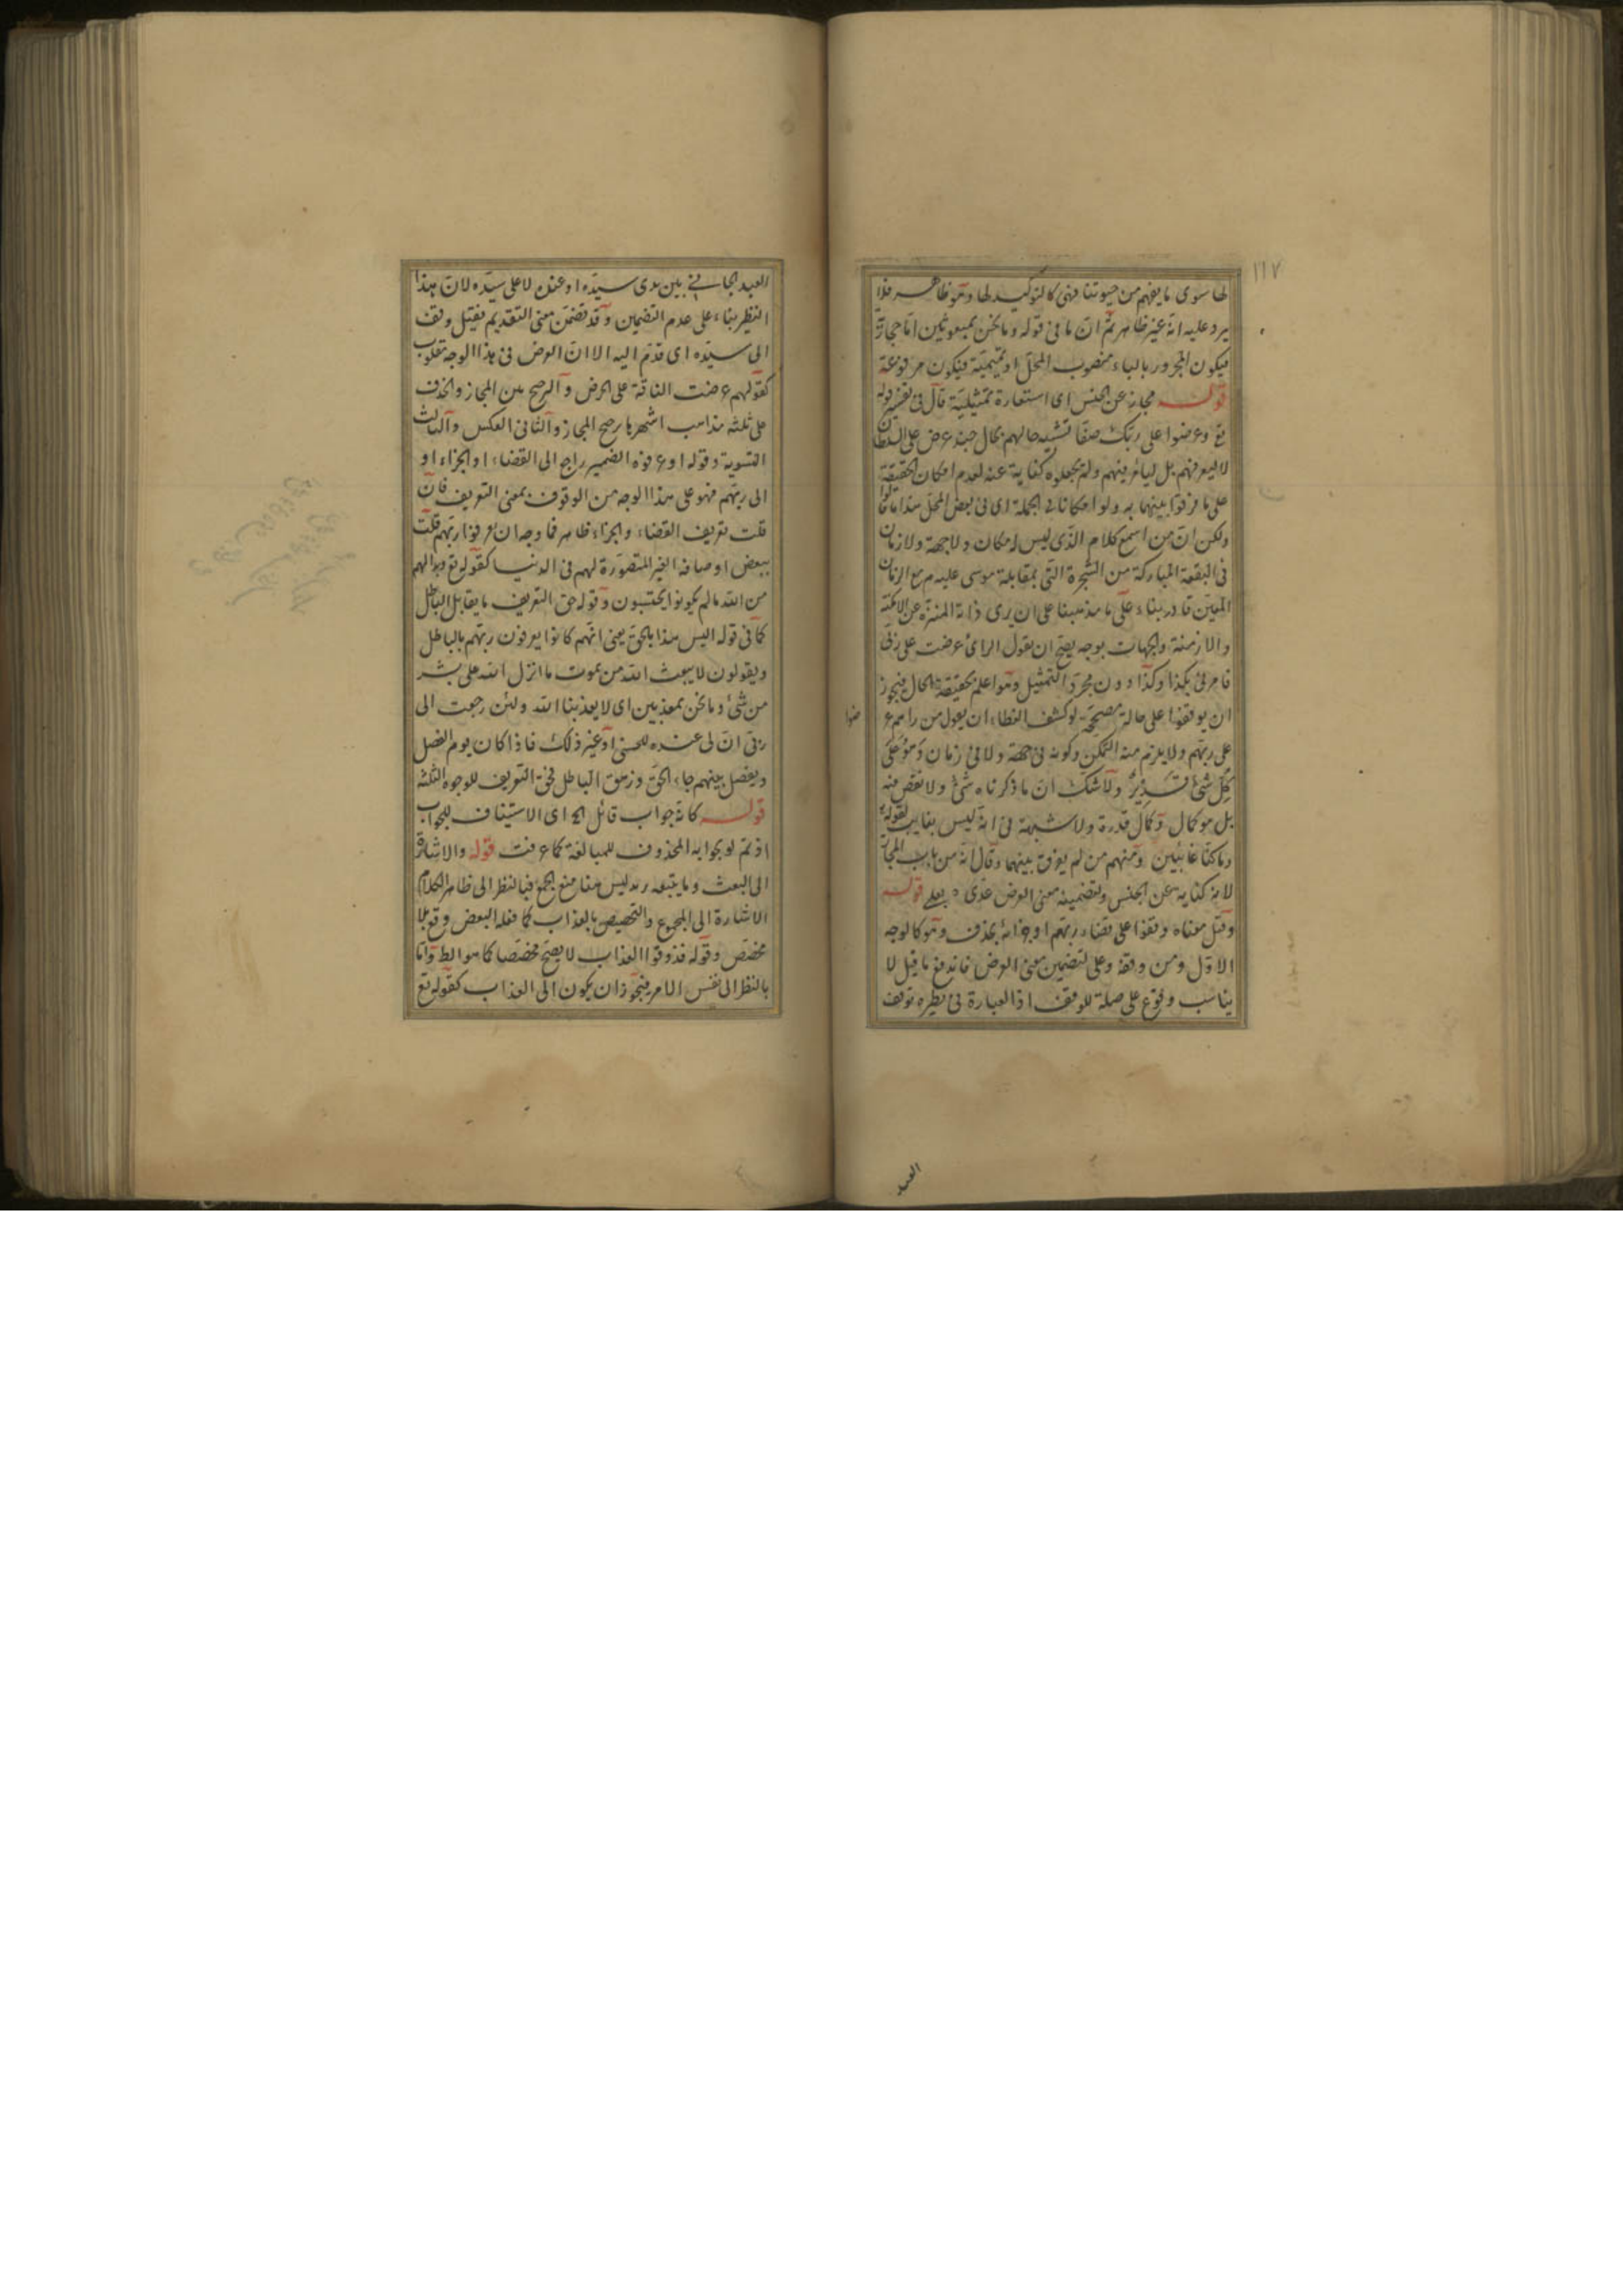 ١١٧
لها سوى ما يفهم من حيوتنا فهى كالتوكيد لها وهو ظاهر فلا
يرد عليه انه غير ظاهر ثم ان ما فى قوله وما نحن بمبعوثين اما حجازية
فيكون المجرور بالباء منصوب المحل او تميمية فيكون مرفوعة
قوله مجاز عن الحبس اى استعارة تمثيلية قال فى تفسير قوله
تع وعرضوا على ربك صفا تشبيه حالهم بحال جند عرض على السلطان
لا ليعرفهم بل ليأمر فيهم ولم يجعلوه كناية عنه لعدم امكان الحقيقة
على ما فرقوا بينهما به ولو امكانا فى الجملة اى فى بعض المحل هذا ما قالوا
ولكن ان من اسمع كلام الذى ليس له مكان ولا جهة ولا زمان
فى البقعة المباركة من الشجرة التى بمقابلة موسى عليه م مع الزمان
المعين قادر بناء على ما مذهبنا على ان يرى ذاته المنزه عن الامكنة
والازمنة والجهات بوجه يصح ان يقول الرائ عرضت على ربى
فامرنى بكذا وكذا دون مجرد التمثيل وهو اعلم بحقيقة الحال فيجوز
ان يوقفوا على حالة مصححة لو كشف الغطاء ان يقول من راهم عرضوا
على ربهم ولا يلزم منه التمكن وكونه فى جهة ولا فى زمان وهو على
كل شئ قدير ولا شك ان ما ذكرناه شئ ولا نقص فيه
بل هو كمال وكمال قدرة ولا شبهة فى انه ليس بغايب لقوله
وما كنا غائبين ومنهم من لم يفرق بينهما وقال انه من باب المجاز
لانه كناية عن الحبس ولتضمينه معنى العرض عدى بعلى قوله
وقيل معناه وقفوا على قضاء ربهم او جزائه بحذف وهو كالوجه
الاول ومن وقفه وعلى لتضمين معنى العرض فاندفع ما قيل لا
يناسب وقوع على صلة للوقف اذ العبارة فى نظيره توقف
العبد
العبد الجانى بين يدى سيده او عنده لا على سيده لان هذا
النظر بناء على عدم التضمين وقد تضمن معنى التقديم فقيل وقف
الى سيده اى قدم اليه الا ان العرض فى هذا الوجه مقلوب
كقولهم عرضت الناقة على الحوض والترجيح بين المجاز والحذف
على ثلثه مذاهب اشهرها رجح المجاز والثانى العكس والثالث
التسوية وقوله او عرفوه الضمير راجع الى القضاء او الجزاء او
الى ربهم فهو على هذا الوجه من الوقوف بمعنى التعريف فان
قلت تعريف القضاء والجزاء ظاهر فما وجه ان عرفوا ربهم قلت
ببعض اوصافه الغير المتصورة لهم فى الدنيا كقوله تع وبدا لهم
من الله مالم يكونوا يحتسبون وقوله حق التعريف ما يقابل الباطل
كما فى قوله اليس هذا بالحق يعنى انهم كانوا يعرفون ربهم بالباطل
ويقولون لا يبعث الله من يموت ما انزل الله على بشر
من شئ وما نحن بمعذبين اى لا يعذبنا الله ولئن رجعت الى
ربى ان لى عنده للحسنى او غير ذلك فاذا كان يوم الفصل
ويفصل بينهم جاء الحق وزهق الباطل فحق التعريف للوجوه الثلثه
قوله كانه جواب قائل الخ اى الاستيناف للجواب
اذ تم لو بجوابه المحذوف للمبالغة كما عرفت قوله والاشارة
الى البعث وما يتبعه ليس هنا منع الجمع فبالنظر الى ظاهر الكلام
الاشارة الى المجموع والتخصيص بالعذاب كما فعله البعض وقع بلا
مخصص وقوله فذوقوا العذاب لا يصح مخصصا كما هو الظ واما
بالنظر الى نفس الامر فيجوز ان يكون الى العذاب كقوله تع